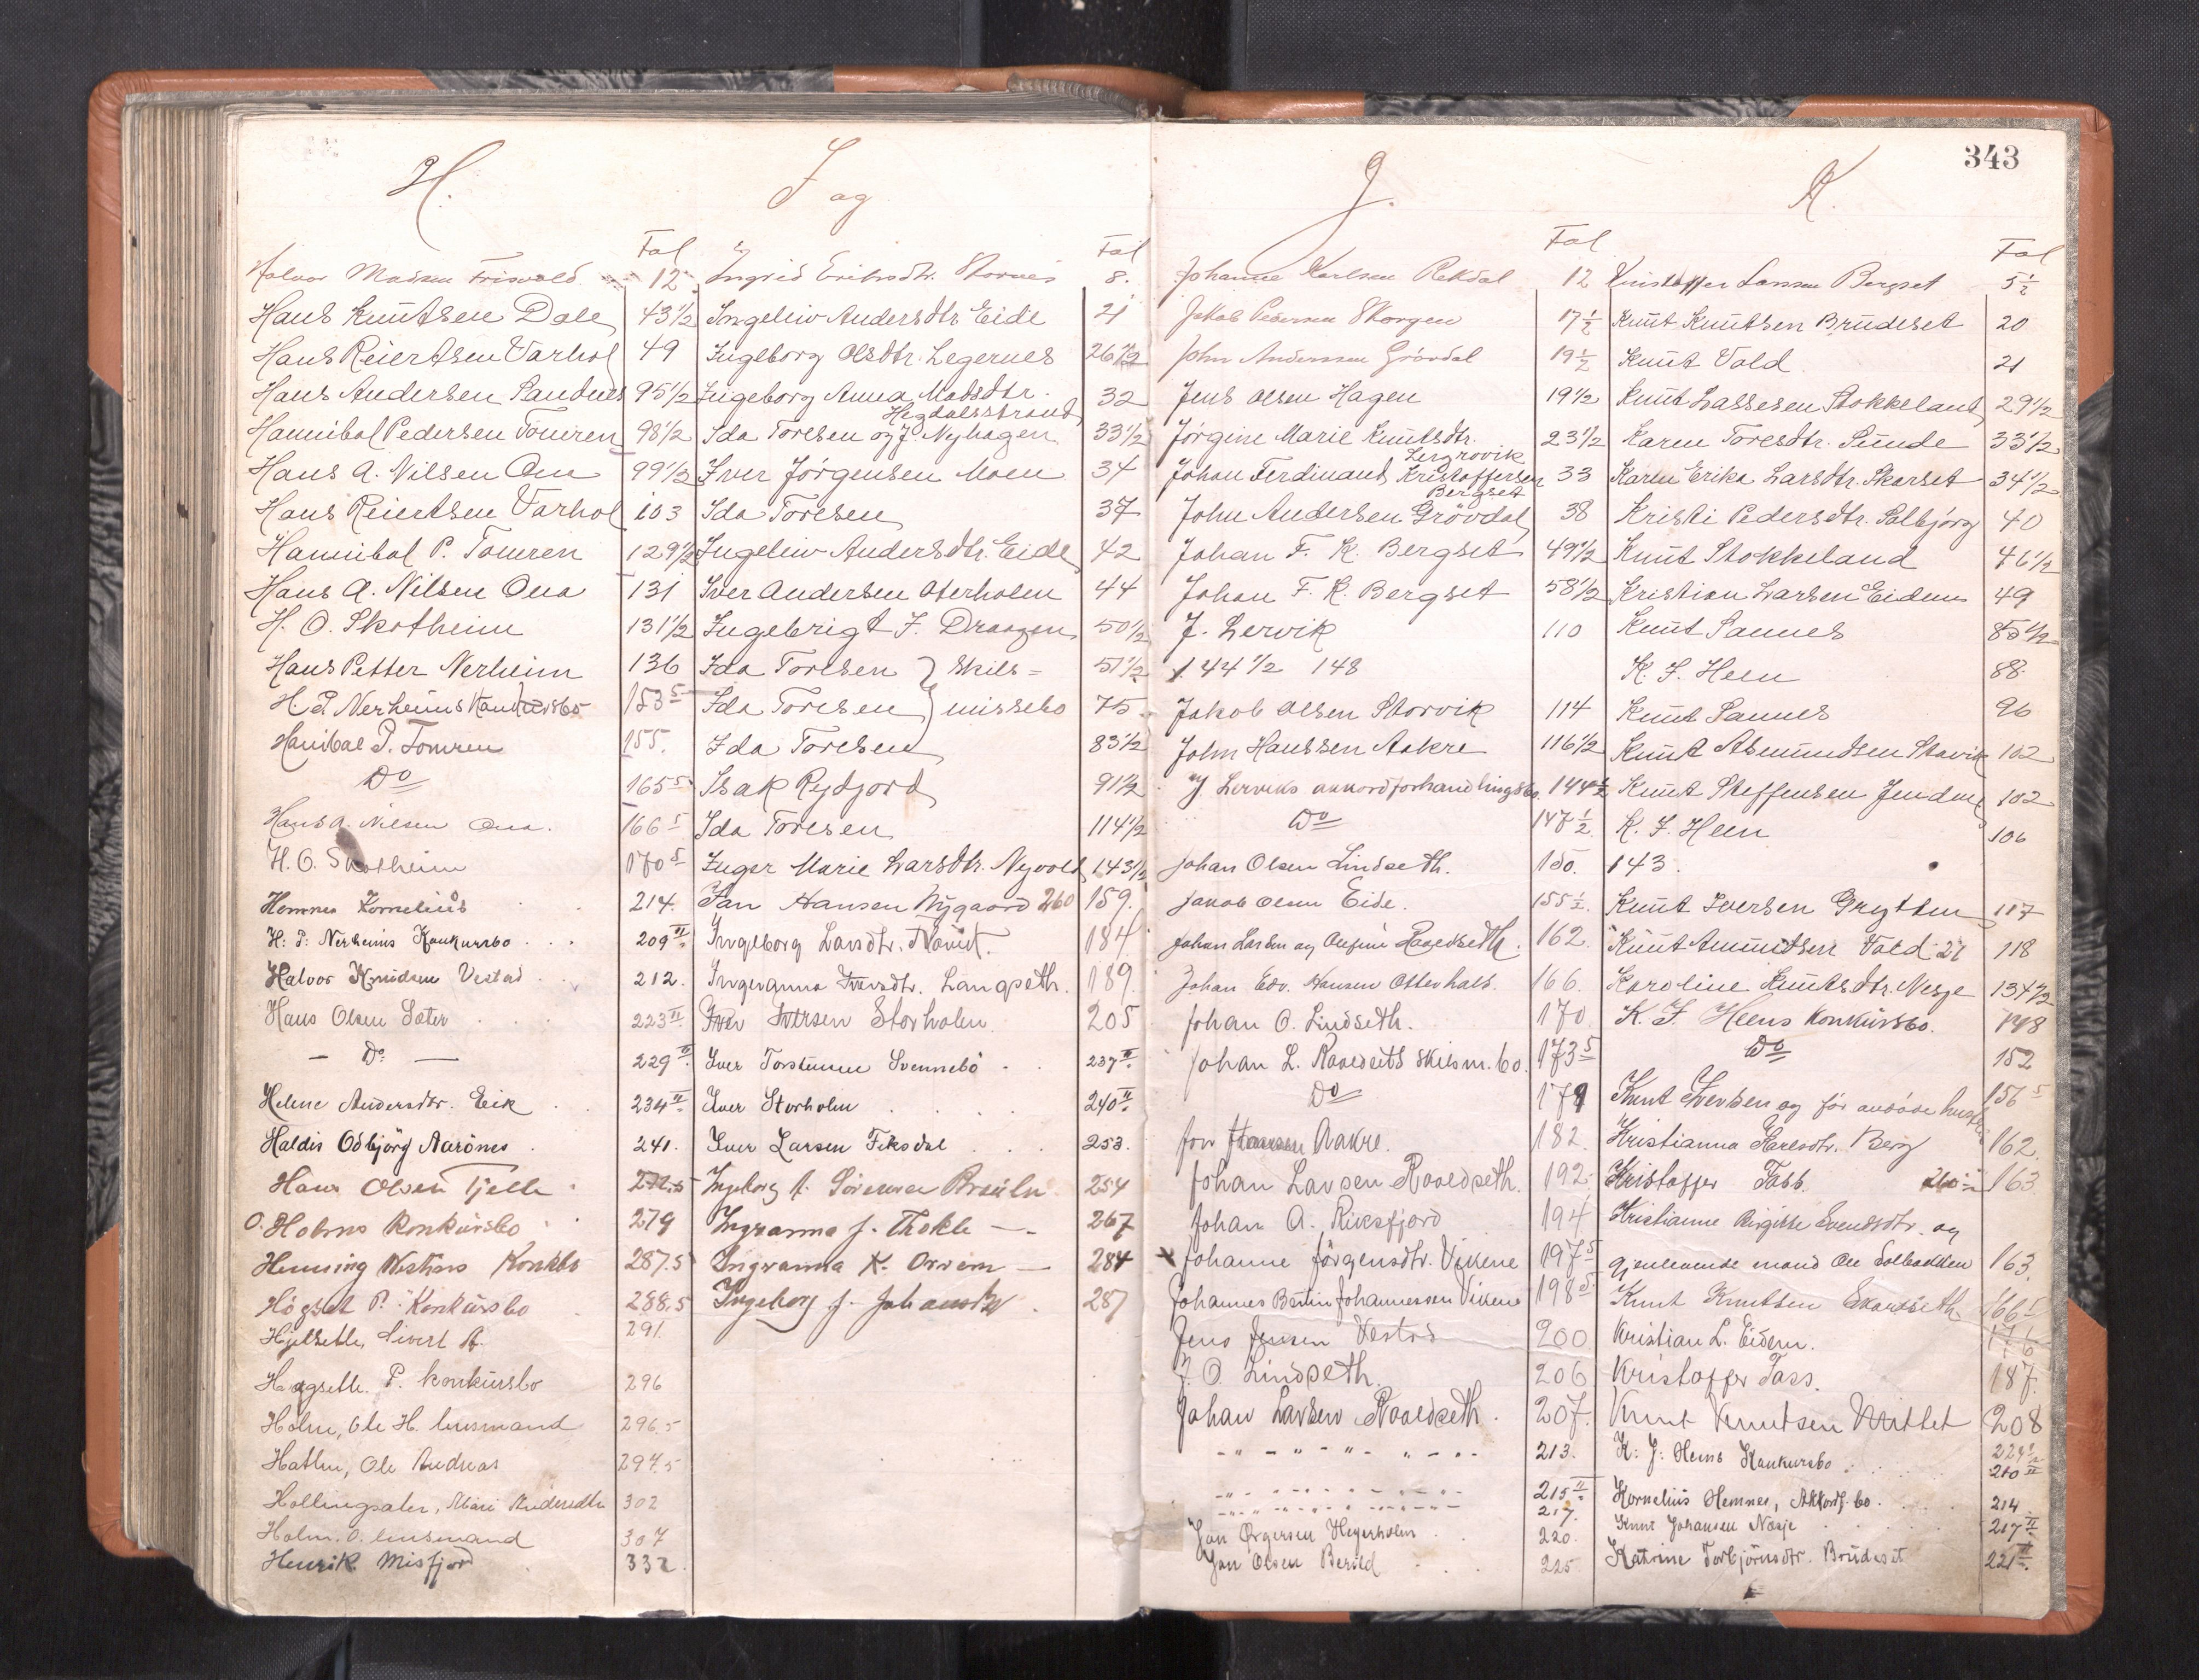 343
H.
Fol
Halvor Madsen Frisvold 12
Hans Knutsen Dale 43 1/2
Hans Reiertsen Varhol 49
Hans Andersen Sandnes 95 1/2
Hannibal Pedersen Tomren 98 1/2
Hans A. Nilsen Ona 99 1/2
Hans Reiertsen Varhol 103
Hannibal P. Tomren 129 1/2
Hans A. Nilsen Ona 131
H. O. Skotheim 131 1/2
Hans Petter Nerheim 136
H. P. Nerheims Konkursbo 153 5
Hanibal P. Tomren 155.
Do 165 5
Hans A. Nilsen Ona. 166 5
H. O. Skotheim 170 5
Hemnes Kornelius 214.
H: P: Nerheims Konkursbo 209 II
Halvor Knudsen Vestad 212.
Hans Olsen Sæter 223 II
— Do — 229 II
Helene Andersdtr. Eik 234 II
Haldis Odbjörg Aarönes 241.
Hans Olsen Tjelle 272.5
O. Holms Konkursbo 279
Henning Konkbo 287.5
Högset P. Konkursbo 288.5
Hjelseth, Sivert A. 291.
Hagseth P. konkursbo 296
Holm, Ole H. lensmand 296.5
Hatlen, Ole Andreas 297.5
Hollingsæter, Mari Andersdtr 302
Holm. O. lensmand 307
Henrik Misfjord 332.
I og
Fol
Ingrid Eriksdtr. Stornes 8.
Ingeliv Andersdtr Eide 21
Ingeborg Olsdtr. Legernes 26 1/2
Ingeborg Anna Madsdtr. Hegdalsstrand 32
Ida Toresen og J. Nyhagen 33 1/2
Iver Jörgensen Moen 34
Ida Toresen 37
Ingeliv Andersdtr. Eide 42
Iver Andersen Oterholm 44
Ingebrigt J. Draagen 50 1/2
Ida Toresen } Skils= 51 1/2
Ida Toresen } missebo 75
Ida Toresen 83 1/2
Isak Rejdjord 91 1/2
Ida Toresen 114 1/2
Inger Marie Larsdtr. Nyvold 143 1/2
Jan Hansen Nygaard 260 159.
Ingeborg Larsdtr. 184
Ingeranna Iversdtr. Langseth. 189.
Iver Iversen Storholm. 205
Iver Torstensen Svennebö 237 II
Iver Storholm 240 II
Iver Larsen Fiksdal 253.
Ingeborg A. Sörensen 254
Ingvanna J. Thokle — 267
Ingvanna K. Orvem — 284
Ingeborg J. 287
J.
Fol
Johanne Karlsen Rekdal 12
Jakob Pedersen Skorgen 17 1/2
John Andersen Grövdal 19 1/2
Jens Olsen Hagen 19 1/2
Jörgine Marie Knutsdtr. Lergrovik 23 1/2
Johan Ferdinand Kristoffersen Bergset 33
John Andersen Grövdal 38
Johan F. K. Bergset 49 1/2
Johan F. K. Bergset 58 1/2
J. Lervik 110
144 1/2 148
Jakob Olsen Storvik 114
John Hanssen Aakre 116 1/2
J. Lerviks akkordforhandlingsbo. 144 1/2
Do 147 1/2
Johan Olsen Lindseth. 150.
Jakob Olsen Eide. 155 1/2.
Johan Larsen og Raoldseth. 162.
Johan Edv. Hansen Otterhals. 166.
Johan O. Lindseth. 170
Johan L. Raoldseths Skilsm. bo. 173 5
Do 179
Jon Aakre. 182.
Johan Larsen Raoldseth. 192.
Johan A. Riksfjord 194
x Johanne Jörgensdtr. Vikene 197 5
Johannes Bertin Johannessen Vikene 198 5
Jens Jensen Vestad 200
J. O. Lindseth. 206
Johan Larsen Raoldseth. 207.
-"- -"- -"- 213.
-"- -"- -"- 215 II
-"- -"- -"- 217.
Jon Ørgersen Hegerholm 220.
Jon Olsen Berild 225
K.
Fol
Kristoffer Larssen Bergset 5 1/2
Knut Knutsen Brudeset 20
Knut Vold 21
Knut Lassesen Stokkeland 29 1/2
Karen Toresdtr. Sunde 33 1/2
Karen Erika Larsdtr. Skarset 34 1/2
Kristi Pedersdtr. Solbjörg 40
Knut Stokkeland 46 1/2
Kristian Larsen Eidem 49
Knut Sannes 85 1/2
K. J. Heen 88.
Knut Sannes 96
Knut Asmundsen Stavik 102
Knut Steffensen Jendem 102
K. J. Heen 106
143.
Knut Iversen Grytten 117
Knut Amundsen Vold 27 118
Karoline Knutsdtr. Nesje 134 1/2
K. J. Heens Konkursbo. 148
Do 152
Knut Iversen og før avdöde hustru 156 5
Kristianna Karlsdtr. Berg 162.
Kristoffer Tass. 163
Kristianne Birgitte Evendsdtr. og
gjenlevende mand Ole Solbakken 163.
Knut Knutsen 166 5
Kristian L. Eidem. 176
Kristoffer Tass. 187.
Knut Knutsen Mittet 208
K: J: Heens Konkursbo 210 II
Kornelius Hemnes, Akkordf. bo. 214
Knut Johansen Nesje 217 II
Katrine Torbjörnsdtr. Brudeset 221 II.